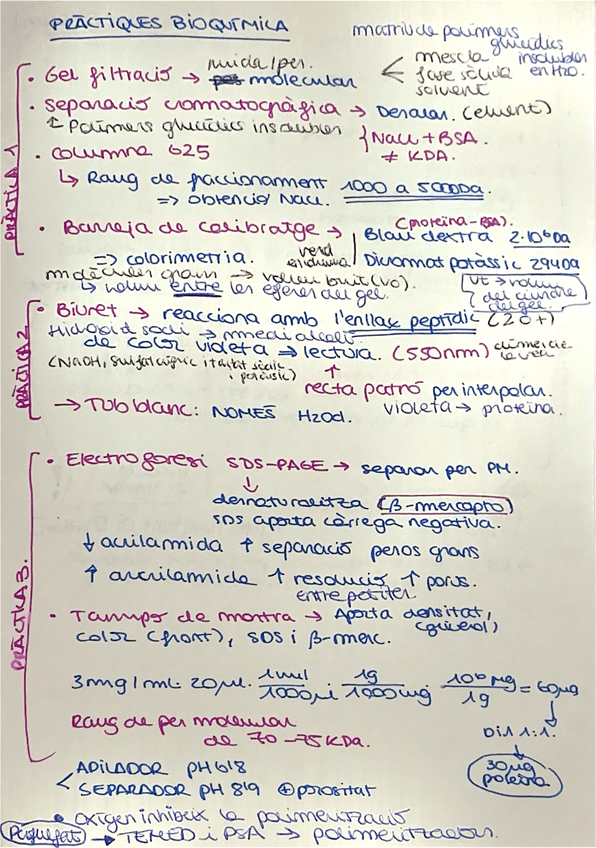 PRÀCTIQUES BIOQUÍMICA
matriu de polímers
glucídics
insolubles
en H2O.
PRÀCTICA 1
• Gel filtració → mida/per. molecular
mescla
fase sòlida
solvent
• separació cromatogràfica → Dessalar. (eluent)
↳ Polímers glucídics insolubles
{ NaCl + BSA.
≠ KDA.
• Columna G25
↳ Rang de fraccionament 1000 a 5000Da.
=> obtenció NaCl.
• Barreja de calibratge →
(proteïna-BSA).
Blau dextrà 2·10⁶Da
=> colorimetria.
Dicromat potàssic 294Da
molècules grans → volum buit (Vo).
↳ volum entre les esferes del gel.
Vt → volum
del cilindre
del gel.
PRÀCTICA 2
• Biuret → reacciona amb l'enllaç peptídic (2 o +)
Hidròxid sodi → medi alcalí.
de color violeta => lectura. (550nm)
(NaOH, sulfat cúpric i tartrat sòdic
i potàssic)
↑
recta patró per interpolar.
→ Tub blanc: NOMÉS H2Od.
violeta → proteïna.
PRÀCTICA 3.
• Electroforesi SDS-PAGE → separar per PM.
↓
desnaturalitza (β-mercapto)
SDS aporta càrrega negativa.
↓ acrilamida ↑ separació pesos grans
↑ acrilamida ↑ resolució ↑ porus.
entre petites.
• Tampó de mostra → Aporta densitat,
(glicerol)
color (front), SDS i β-merc.
3mg/mL · 20µl · 1ml/1000µl · 1g/1000mg · 10⁶µg/1g = 60µg
↓
Dil 1:1.
↓
30µg
proteïna
Rang de pes molecular
de 70-75 KDa.
< APILADOR pH 6'8
SEPARADOR pH 8'9 ⊕ porositat
• oxigen inhibeix la polimerització
→ TEMED i PSA → polimeritzadors.